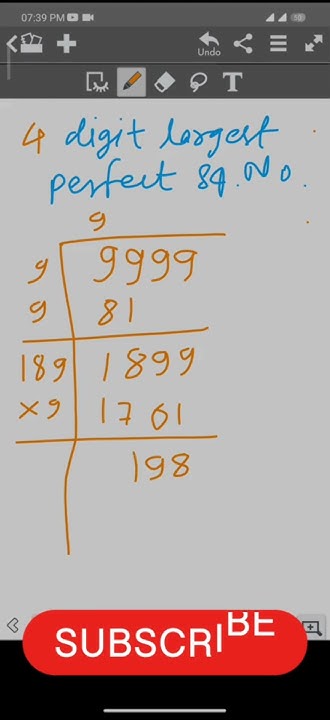 07:39 PM
Undo
T
4 digit largest
perfect sq. No.
9
9 9999
9 81
189 1899
×9 1701
198
SUBSCRIBE